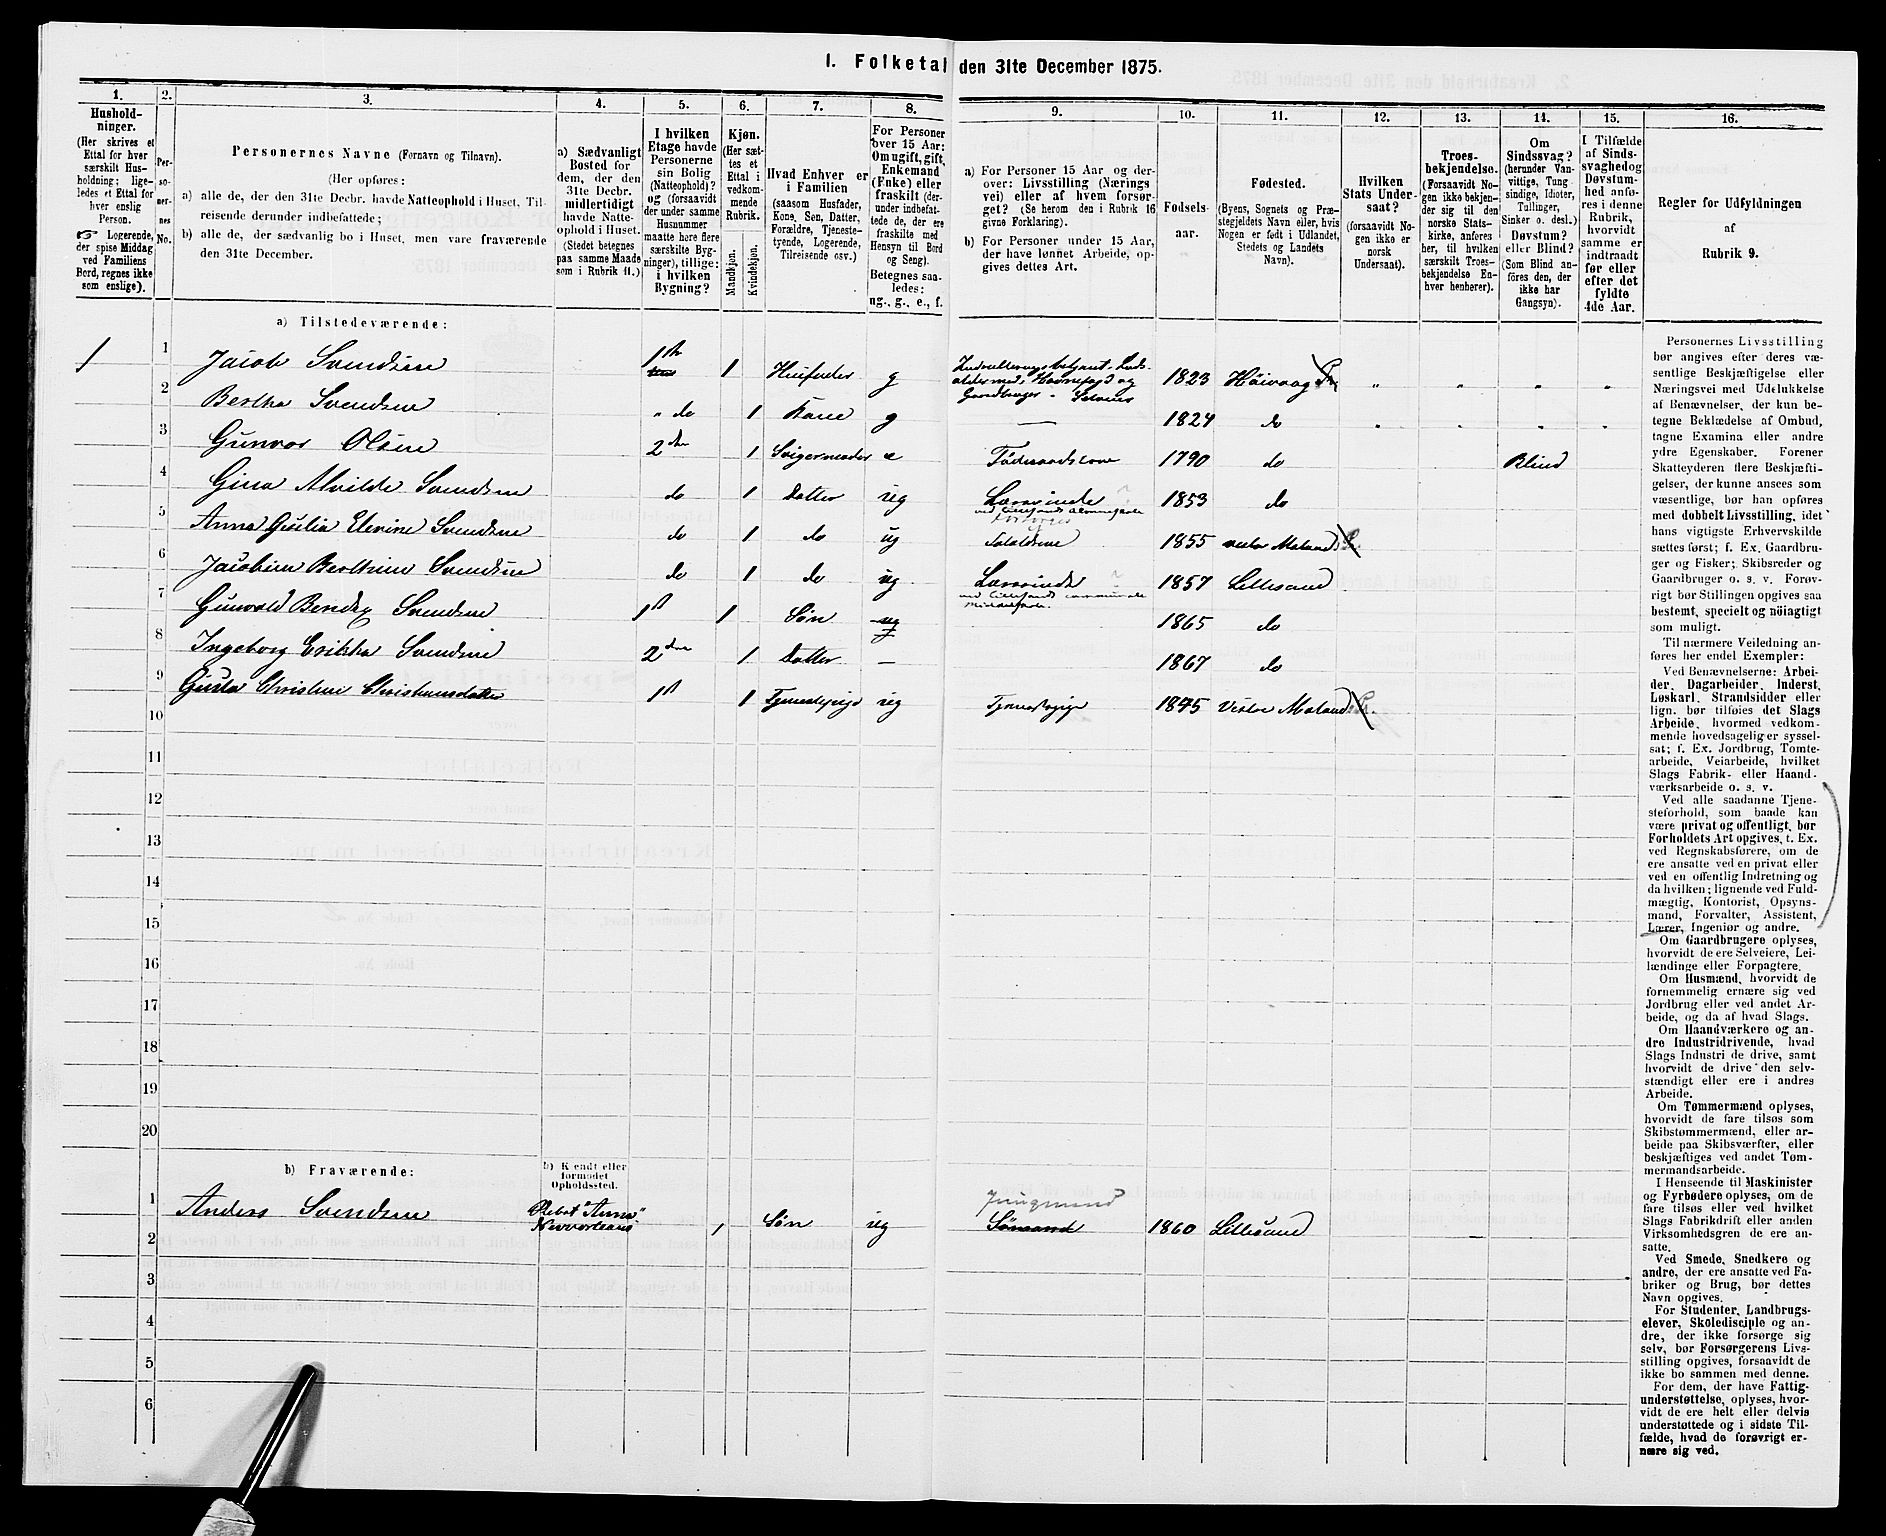 1. Folketal den 31te December 1875.
1. 2. 3. 4. 5. 6. 7. 8. 9. 10. 11. 12. 13. 14. 15. 16.
Hushold-
ninger.
(Her skrives et
Ettal for hver
særskilt Hus-
holdning; lige-
ledes et Ettal for
hver enslig
Person.
☞ Logerende,
der spise Middag
ved Familiens
Bord, regnes ikke
som enslige).
Per-
so-
ner-
nes
No.
Personernes Navne (Fornavn og Tilnavn).
(Her opføres:
a) alle de, der den 31te Decbr. havde Natteophold i Huset, Til-
reisende derunder indbefattede;
b) alle de, der sædvanlig bo i Huset, men vare fraværende
den 31te December.
a) Sædvanligt
Bosted for
dem, der den
31te Decbr.
midlertidigt
havde Natte-
ophold i Huset.
(Stedet betegnes
paa samme Maade
som i Rubrik 11.)
I hvilken
Etage havde
Personerne
sin Bolig
(Natteophold)?
og (forsaavidt
der under samme
Husnummer
maatte høre flere
særskilte Byg-
ninger), tillige:
i hvilken
Bygning?
Kjøn.
(Her sæt-
tes et
Ettal i
vedkom-
mende
Rubrik.
Mandkjøn.
Kvindekjøn.
Hvad Enhver er
i Familien
(saasom Husfader,
Kone, Søn, Datter,
Forældre, Tjeneste-
tyende, Logerende,
Tilreisende osv.)
For Personer
over 15 Aar:
Om ugift, gift,
Enkemand
(Enke) eller
fraskilt (der-
under indbefat-
tede de, der ere
fraskilte med
Hensyn til Bord
og Seng).
Betegnes saa-
ledes:
ug., g., e., f.
a) For Personer 15 Aar og der-
over: Livsstilling (Nærings
vei) eller af hvem forsør-
get? (Se herom den i Rubrik 16
givne Forklaring).
b) For Personer under 15 Aar,
der have lønnet Arbeide, op-
gives dettes Art.
Fødsels-
aar.
Fødested.
(Byens, Sognets og Præ-
stegjeldets Navn eller, hvis
Nogen er født i Udlandet,
Stedets og Landets
Navn).
Hvilken
Stats Under-
saat?
(forsaavidt No-
gen ikke er
norsk
Undersaat).
Troes-
bekjendelse.
(Forsaavidt No-
gen ikke bekjen-
der sig til den
norske Stats-
kirke, anføres
her, til hvilken
særskilt Troes-
bekjendelse En-
hver henhører).
Om
Sindssvag?
(herunder Van-
vittige, Tung
sindige, Idioter,
Tullinger,
Sinker o. desl.)
Døvstum?
eller Blind?
(Som Blind an-
føres den, der
ikke har
Gangsyn).
I Tilfælde
af Sinds-
svaghed og
Døvstum-
hed anfø-
res i denne
Rubrik,
hvorvidt
samme er
indtraadt
før eller
efter det
fyldte
4de Aar.
Regler for Udfyldningen
af
Rubrik 9.
a) Tilstedeværende:
1 1 Jacob Svendsen 1 Husfader g 1823 Høivaag
Gaardbruger Selveier
2 Bertha Svendsen " do 1 Kone g — 1824 do
3 Gunvor Olsen 2den 1 Svigermoder e 1790 do Blind
4 Gina Alvilde Svendsen do 1 Datter ug Lærerinde 1853 do
5 Anna Cecilia Elevine Svendsen do 1 do ug 1855 Vestre Moland
6 Jacobine Berthine Svendsen do 1 do ug Lærerinde 1857 Lillesand
7 Gunvald Bendix Svendsen 1 1 Søn ug 1865 do
8 Ingeborg Erikka Svendsen 2den 1 Datter — 1867 do
9 Christine Christensdatter 1 1 Tjenestepige ug Tjenestepige 1845 Vestre Moland
10
11
12
13
14
15
16
17
18
19
20
b) Fraværende:
b) Kjendt eller
formodet
Opholdssted.
Jungmand
1 Anders Svendsen "Anna" 1 Søn ug Sømand 1860 Lillesand
2
3
4
5
6
Personernes Livsstilling
bør angives efter deres væ-
sentlige Beskjæftigelse eller
Næringsvei med Udelukkelse
af Benævnelser, der kun be-
tegne Beklædelse af Ombud,
tagne Examina eller andre
ydre Egenskaber. Forener
Skatteyderen flere Beskjæfti-
gelser, der kunne ansees som
væsentlige, bør han opføres
med dobbelt Livsstilling, idet
hans vigtigste Erhvervskilde
sættes først; f. Ex. Gaardbru-
ger og Fisker; Skibsreder og
Gaardbruger o. s. v. Forøv-
rigt bør Stillingen opgives saa
bestemt, specielt og nøiagtigt
som muligt.
Til nærmere Veiledning an-
føres her endel Exempler:
Ved Benævnelserne: Arbei-
der, Dagarbeider, Inderst,
Løskarl, Strandsidder eller
lign. bør tilføies det Slags
Arbeide, hvormed vedkom-
mende hovedsagelig er syssel-
sat; f. Ex. Jordbrug, Tomte-
arbeide, Veiarbeide, hvilket
Slags Fabrik- eller Haand-
værksarbeide o. s. v.
Ved alle saadanne Tjene-
steforhold, som baade kan
være privat og offentligt, bør
Forholdets Art opgives, t. Ex.
ved Regnskabsførere, om de
ere ansatte ved en privat eller
ved en offentlig Indretning og
da hvilken; lignende ved Fuld-
mægtig, Kontorist, Opsyns-
mand, Forvalter, Assistent,
Lærer, Ingeniør og andre.
Om Gaardbrugere oplyses,
hvorvidt de ere Selveiere, Lei-
lændinge eller Forpagtere.
Om Husmænd, hvorvidt de
fornemmelig ernære sig ved
Jordbrug eller ved andet Ar-
beide, og da af hvad Slags.
Om Haandværkere og an-
dre Industridrivende, hvad
Slags Industri de drive, samt
hvorvidt de drive den selv-
stændigt eller ere i andres
Arbeide.
Om Tømmermænd oplyses,
hvorvidt de fare tilsøs som
Skibstømmermænd, eller ar-
beide paa Skibsværfter, eller
beskjæftiges ved andet Tøm-
mermandsarbeide.
I Henseende til Maskinister
og Fyrbødere oplyses, om de
fare tilsøs eller ved hvilket
Slags Fabrikdrift eller anden
Virksomhedsgren de ere an-
satte.
Ved Smede, Snedkere og
andre, der ere ansatte ved Fa-
briker og Brug, bør dettes
Navn opgives.
For Studenter, Landbrugs-
elever, Skoledisciple og an-
dre, der ikke forsørge sig
selv, bør Forsørgerens Livs-
stilling opgives, forsaavidt de
ikke bo sammen med denne.
For dem, der have Fattig-
understøttelse, oplyses, hvor-
vidt de ere helt eller delvis
understøttede og i sidste Til-
fælde, hvad de forøvrigt er-
nære sig ved.